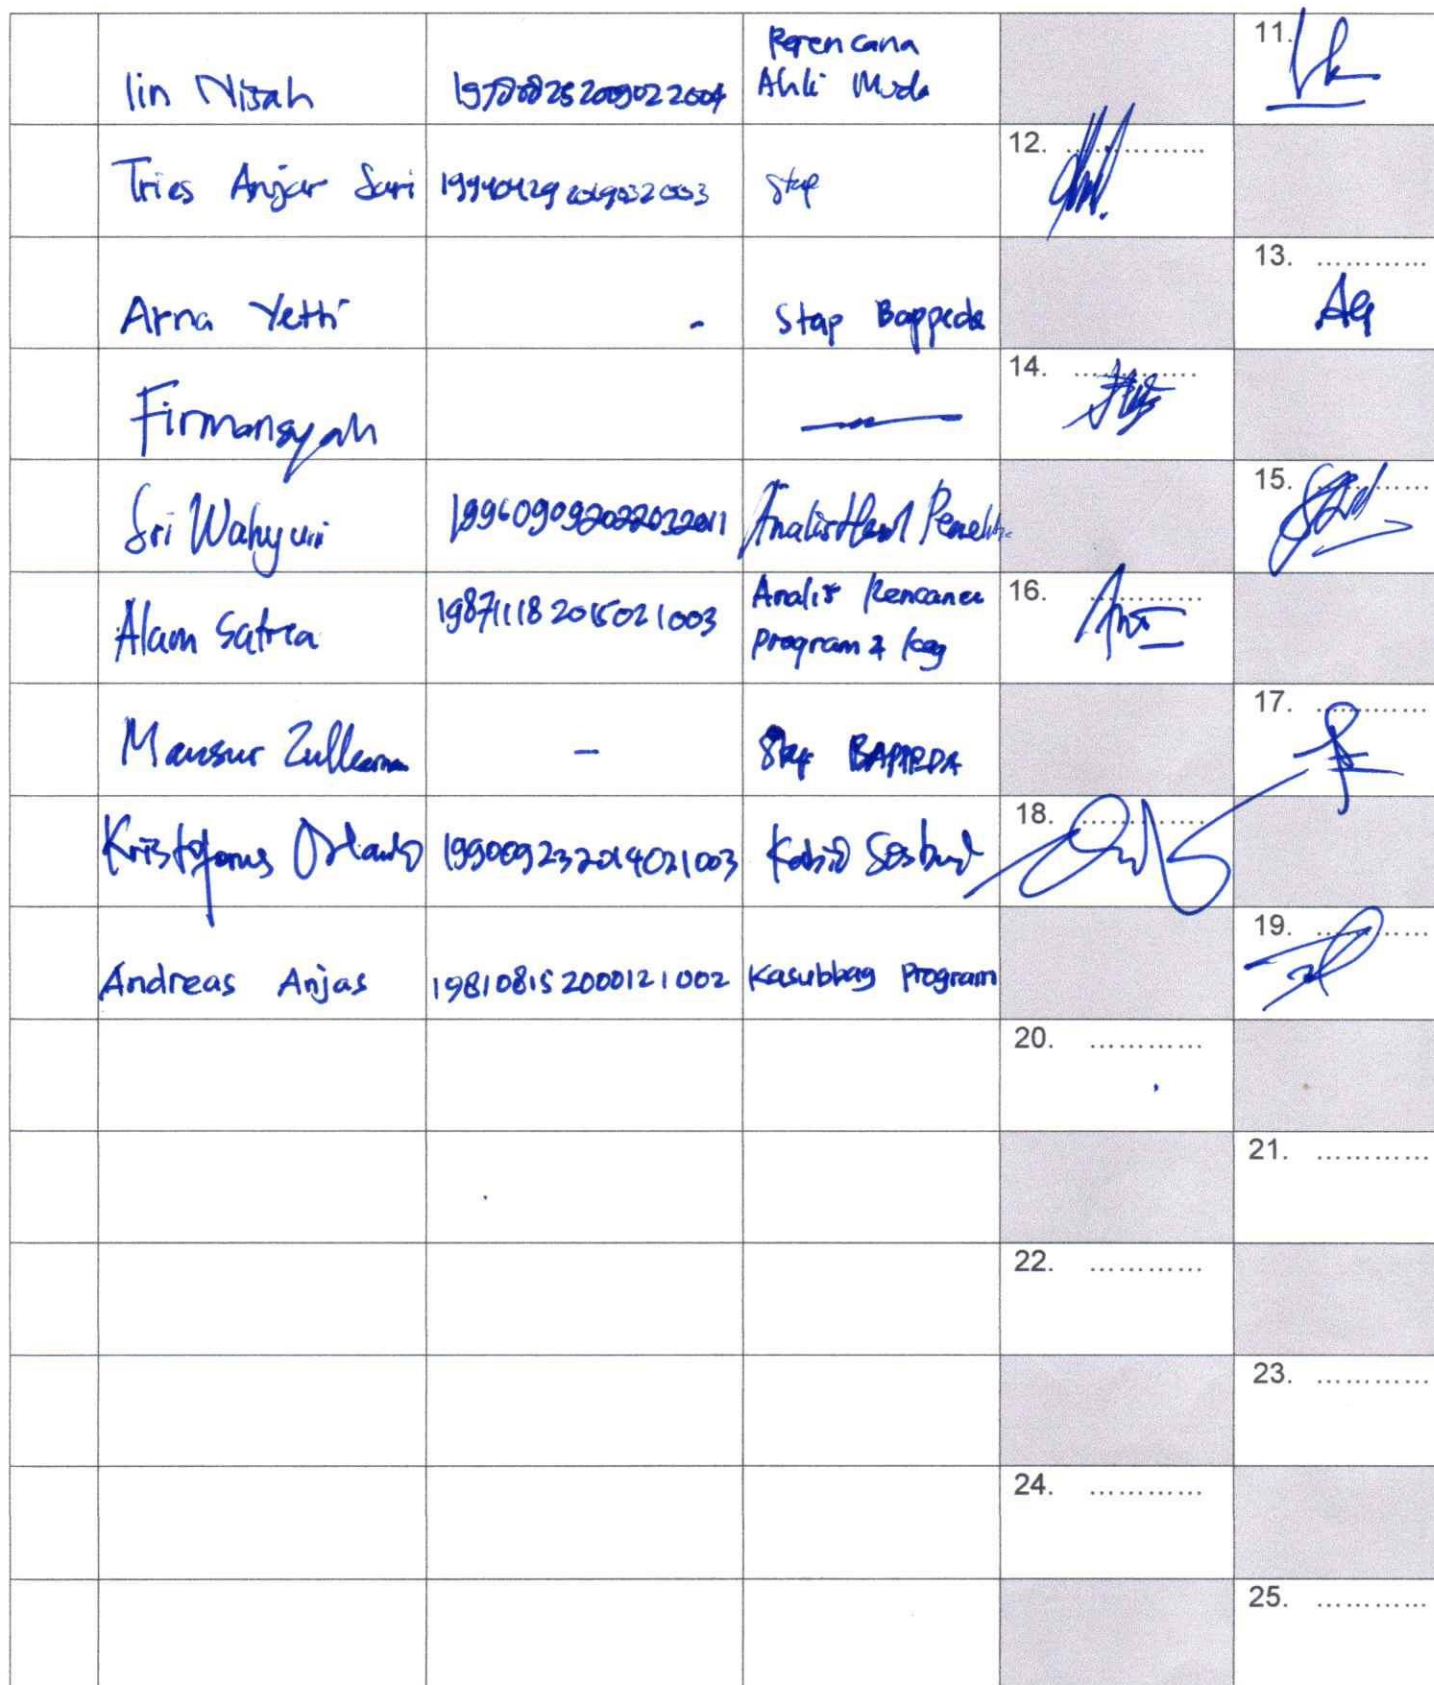 Perencana
11.
Iin Nisah 197808252009022004 Ahli Muda
12. ..............
Tries Anjar Sari 199404292019032003 Stap
13. ............
Arna Yetti - Stap Bappeda
14. ............
Firmansyah
15. ............
Sri Wahyuni 199609092022032011 Analis Hasil Penelit
Analis Rencana 16. ............
Alam Satria 198711182015021003
Program & Keg
17. ............
Mansur Zulkarnan - BAPPEDA
18. ............
Kristoforus Orlando 199009232014021003 Kabid Sosbud
19. ............
Andreas Anjas 198108152000121002 Kasubbag Program
20. ............
21. ............
22. ............
23. ............
24. ............
25. ............